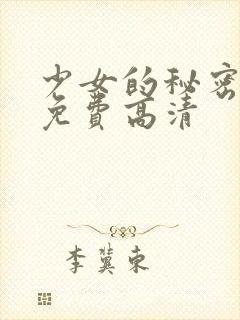 少女的秘密
免費高清
李冀東